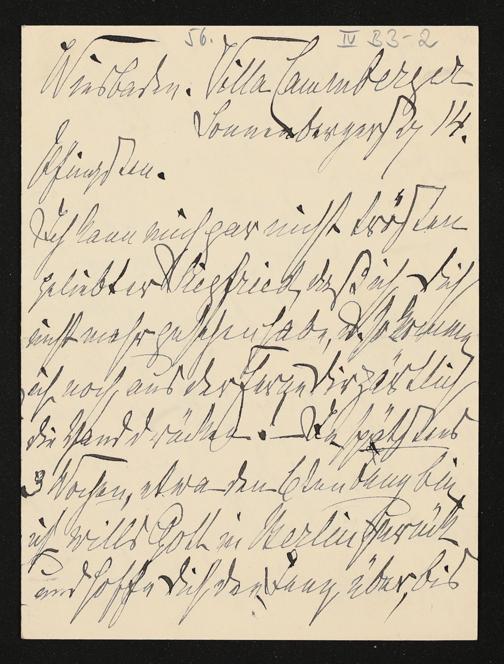 56. IV B3-2
Wiesbaden. Villa Cammberger
Sonnenbergerstr 14.
Pfingsten.
Ich kann mich gar nicht trösten
geliebter Siegfried, daß ich Dich
nicht mehr gesehen habe, u. so komme
ich noch aus der Ferne Dir zärtlich
die Hand drücken. — In spätstens
3 Wochen, etwa den 6ten Juny bin
ich wills Gott in Berlin zurück
und hoffe Dich den Juny über, bis